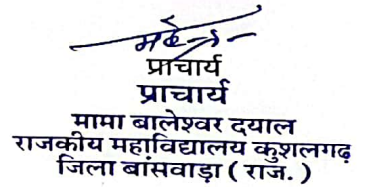 प्राचार्य
प्राचार्य
मामा बालेश्वर दयाल
राजकीय महाविद्यालय कुशलगढ़
जिला बांसवाड़ा ( राज. )